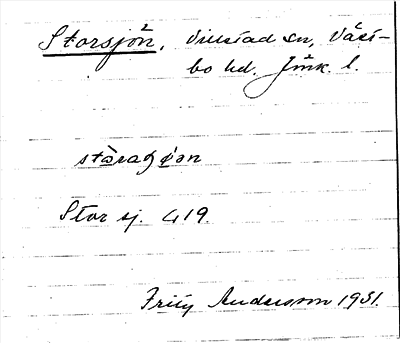 Storsjön, Villstad sn, Västbo hd. Jönk. l.
stòraʃøən
Stor sj. G19.
Fritz Andersson 1931.